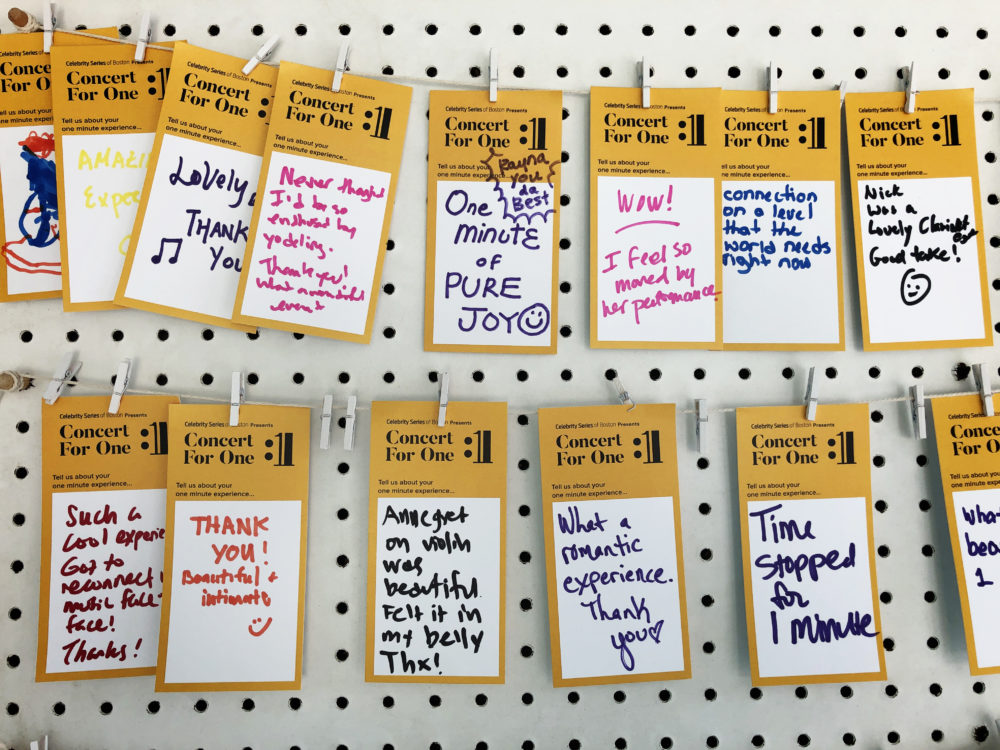 Conce
For O
Tell us about your
one minute e
Celebrity Series of
Concert
For One
Tell us about your
one minute experience...
AMAZI
Celebrity Series of Boston
Concert
For One
Tell us about your
one minute experience...
Lovely
THANK
YOU
Celebrity Series of Boston Presents
Concert :1
For One
Tell us about your
one minute experience...
Never thought
I'd be so
enthused by
yodeling.
Thank you!
What a wonderful
event
Celebrity Series of Boston Presents
Concert :1
For One
Tell us about your
one minute
Rayna
You
da
Best
One
minute
of
PURE
JOY
Concert :1
For One
Tell us about your
one minute experience...
WOW!
I feel so
moved by
her performance.
Celebrity Series of Boston Presents
Concert :1
For One
Tell us about your
one minute experience...
connection
on a level
that the
world needs
right now
Celebrity Series of Boston Presents
Concert :1
For One
Tell us about your
one minute experience...
Nick
was a
Lovely Clarinet
Good take!
Celebrity Series of Boston Presents
Concert :1
For One
Tell us about your
one minute experience...
Such a
cool experie
Got to
reconnect w
music face-
face!
Thanks!
Celebrity Series of Boston Presents
Concert :1
For One
Tell us about your
one minute experience...
THANK
YOU!
Beautiful +
intimate
Celebrity Series of Boston Presents
Concert :1
For One
Tell us about your
one minute experience...
Annegret
on violin
was
beautiful.
Felt it in
my belly
Thx!
Celebrity Series of Boston Presents
Concert :1
For One
Tell us about your
one minute experience...
What a
romantic
experience.
Thank
you♡
Celebrity Series of Boston Presents
Concert :1
For One
Tell us about your
one minute experience...
Time
stopped
for
1 minute
Celebrity Series of
Conce
For O
Tell us about your
one minute exper
What
bea
1